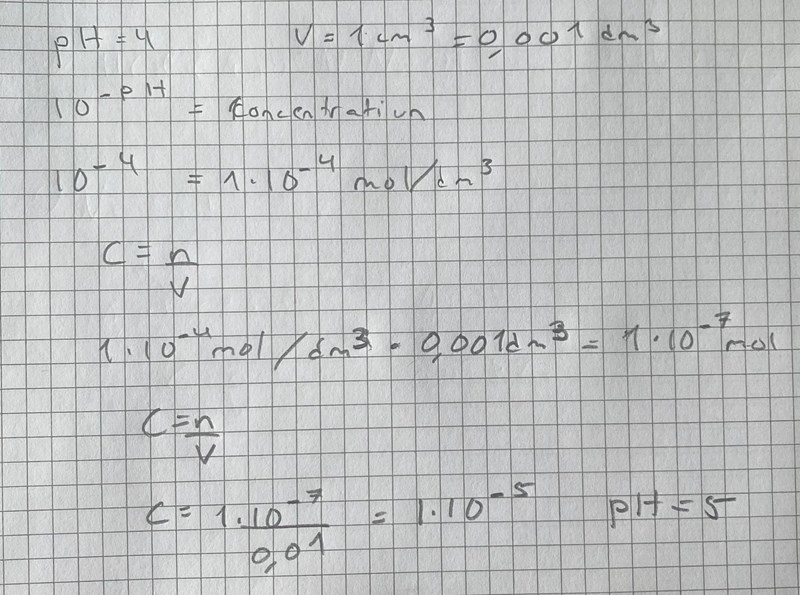 pH = 4 V = 1 cm³ = 0,001 dm³
10⁻ᵖᴴ = Concentration
10⁻⁴ = 1·10⁻⁴ mol/dm³
C = n/V
1·10⁻⁴ mol/dm³ · 0,001 dm³ = 1·10⁻⁷ mol
C = n/V
C = 1·10⁻⁷/0,01 = 1·10⁻⁵ pH = 5